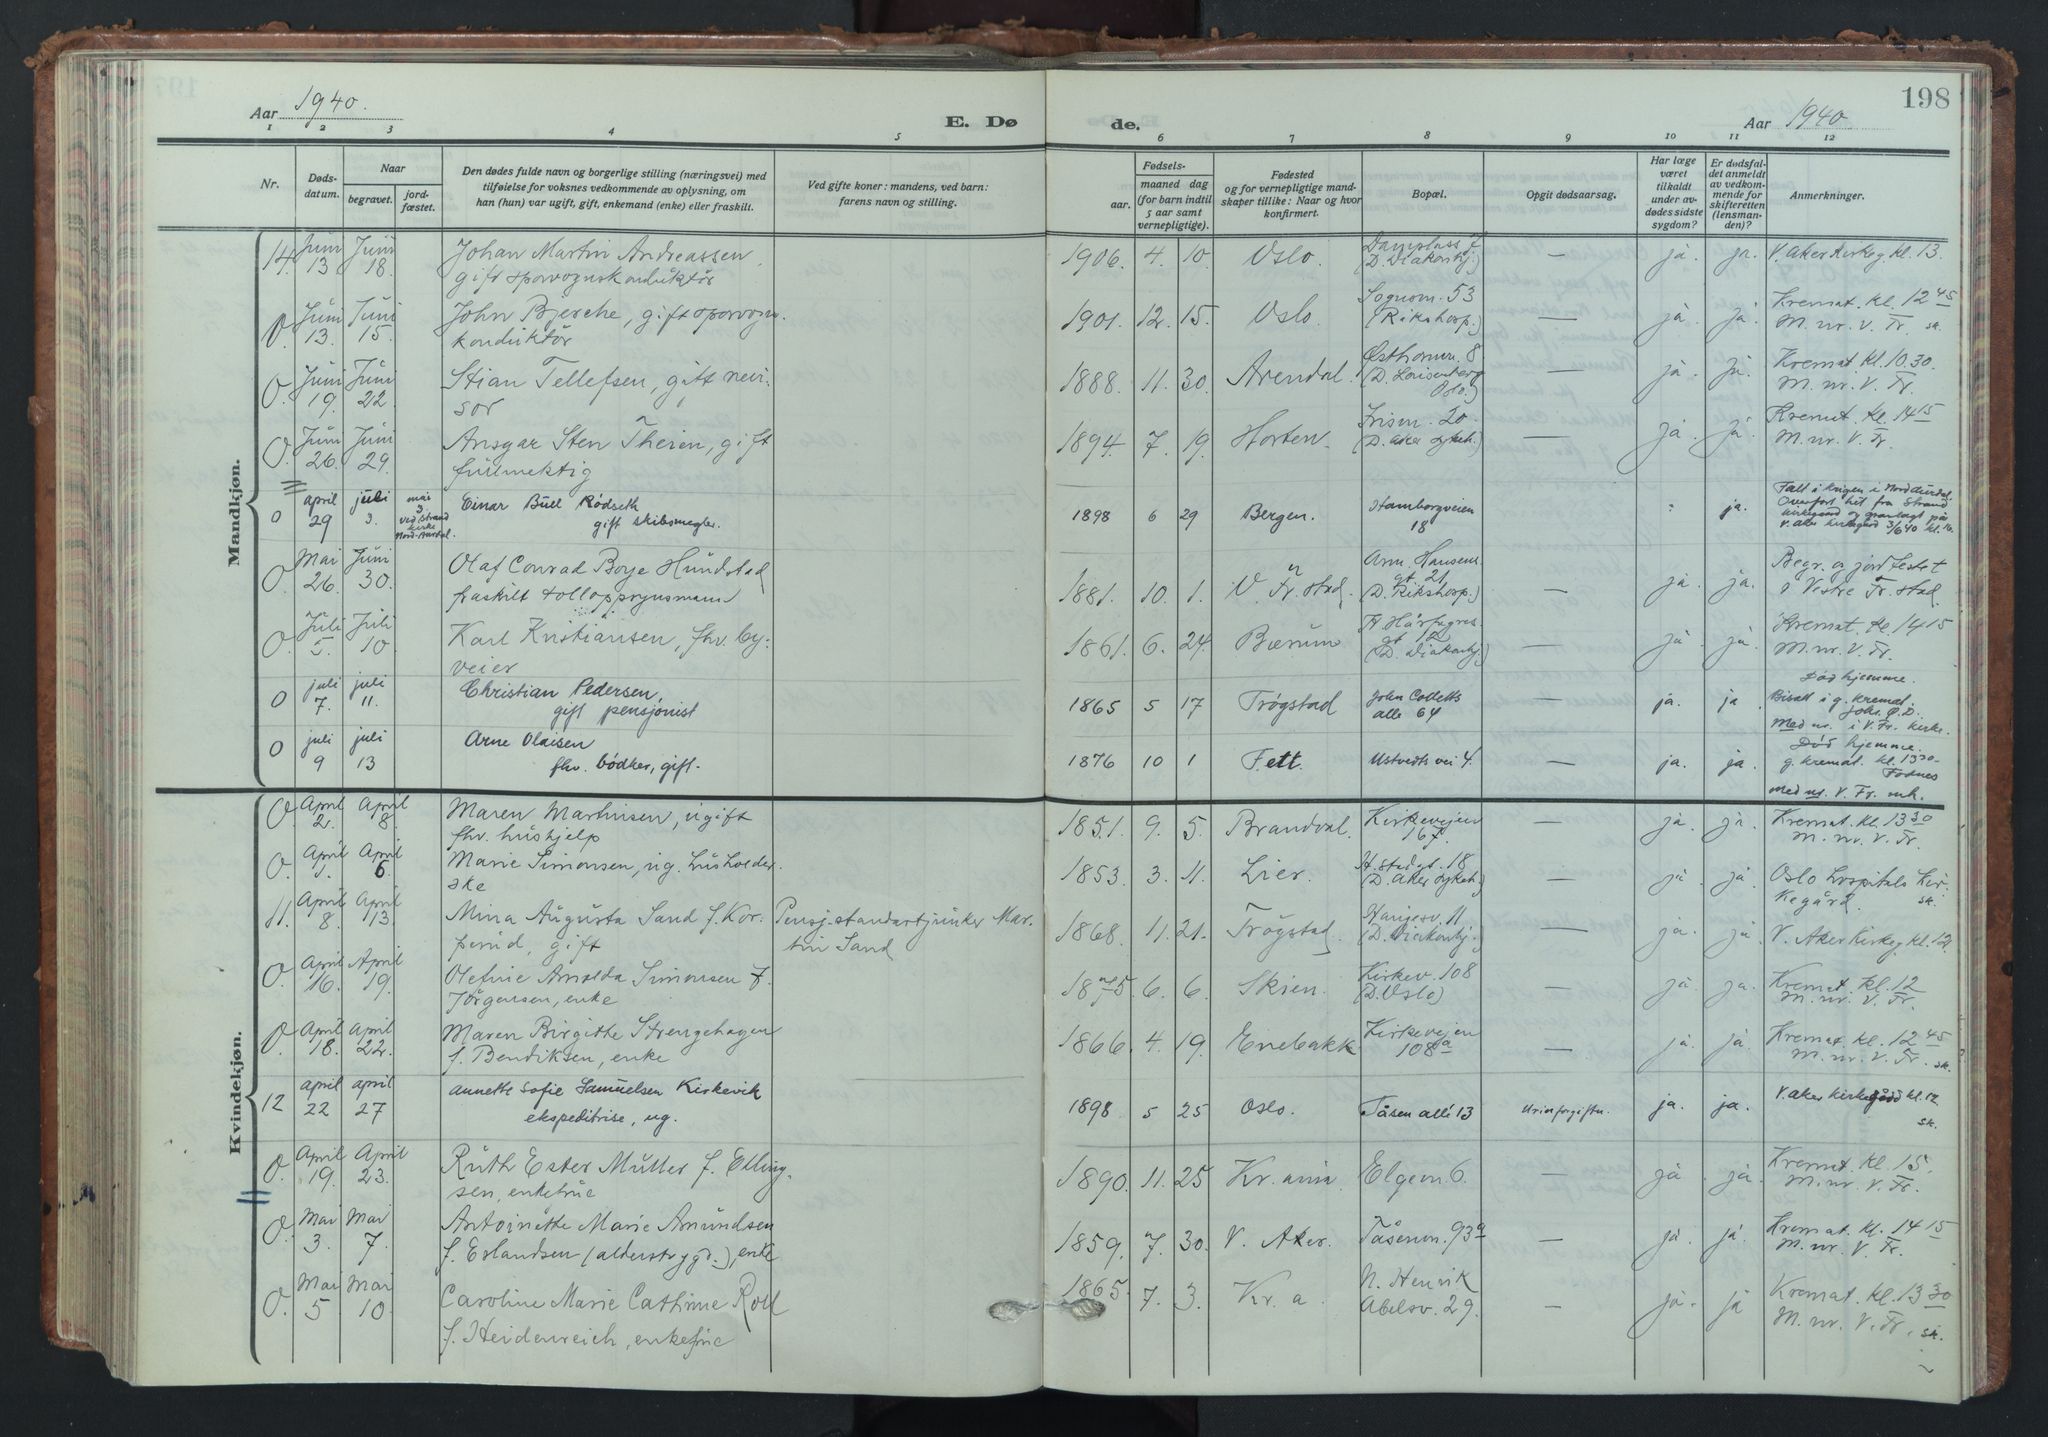 198
Aar 1940.
E. Dø
de.
Aar 1940.
1 2 3 4 5 6 7 8 9 10 11 12
Nr.
Døds-
datum.
Naar
begravet.
jord-
fæstet.
Den dødes fulde navn og borgerlige stilling (næringsvei) med
tilføielse for voksnes vedkommende av oplysning, om
han (hun) var ugift, gift, enkemand (enke) eller fraskilt.
Ved gifte koner: mandens, ved barn:
farens navn og stilling.
Fødsels-
aar.
maaned dag
(for barn indtil
5 aar samt
vernepligtige).
Fødested
og for vernepligtige mand-
skaper tillike: Naar og hvor
konfirmert.
Bopæl.
Opgit dødsaarsag.
Har læge
været
tilkaldt
under av-
dødes sidste
sygdom?
Er dødsfal-
det anmeldt
av vedkom-
mende for
skifteretten
(lensman-
den)?
Anmerkninger.
Maandkjøn.
14. Juni 13 Juni 18. Johan Martin Andreassen
gift sporvognskonduktør
1906. 4. 10. Oslo. Damplass 7
(D. Diakonhj.) — ja. ja. V. Aker Kirkeg. kl. 13.
O. Juni 13. Juni 15. John Bjerche, gift sporvogn-
konduktör
1901. 12. 15. Oslo. Sognsvn. 53
(Rikshosp.) — ja. ja. Kremat. kl. 12 45
M. nr. V. Fr. sk.
O. Juni 19. Juni 22. Stian Tellefsen, gift revi-
sor
1888. 11. 30. Arendal. Østhornv. 8.
(D. Lovisenberg
Oslo.) — ja. ja. Kremat. kl. 10.30.
M. nr. V. Fr.
O. Juni 26. Juni 29. Ansgar Sten Theien, gift
fullmektig
1894. 7. 19. Horten. 20
(D. Aker sykeh.) — ja. ja. Kremat. kl. 14 15
M. nr. V. Fr.
O april 29 juli 3. mai
3
ved Strand
kirke
Nord-Aurdal. Einar Buel Rødseth
gift skibsmegler.
1898 6 29 Bergen. Hamborgveien
18 ja. Falt i krigen i Nord Aurdal.
Overført hit fra Strand
kirkegård og gravlagt på
V. Aker kirkegård 3/6 40 kl. 16.
O. Mai 26. Juni 30. Olaf Conrad Boye Hundstad
fraskilt tolloppsynsmann
1881. 10. 1. V. Fr. stad. Arn. Hansens
gt. 21
(D. Rikshosp.) — ja. ja. Begr. og jordfestet
i Vestre Fr. stad.
O. Juli 5. Juli 10. Karl Kristiansen, fhv. by-
veier
1861. 6. 24. Bærum H. Hårfagres
gt. 12
(D. Diakonhj.) — ja. ja. Kremat. kl. 14 15
M. nr. V. Fr.
O juli 7. juli 11. Christian Pedersen,
gift pensjonist
1865 5 17 Trøgstad John Colletts
alle 64 — ja. ja Død hjemme.
Bisatt i g. kremat.
Med nr. i V. Fr. kirke.
O juli 9 juli 13 Arne Olaisen
fhv. bødker, gift.
1876 10 1 Fett. Ustvedts vei 4. — ja. ja. Død hjemme.
g. kremat. kl. 13 30
Med nr. V. Fr. mk.
Kvindekjøn.
O. April 2. April 8. Maren Martinsen, ugift
fhv. hushjelp
1851. 9. 5. Brandval. Kirkeveien
167. — ja. ja. Kremat. kl. 13 30
M. nr. V. Fr.
O. April 1. April 6. Marie Simonsen, ug. husholder-
ske
1853. 3. 11. Lier. 18
(D. Aker sykeh.) — ja ja. Oslo hospitals kir-
kegård. sk.
11. April 8. April 13. Mina Augusta Sand f. Kor-
perud, gift
Pensj. standartjunker Mar-
tin Sand
1868. 11. 21. Trøgstad. Stangesv. 11
(D. Diakonhj.) — ja. ja. V. Aker Kirkeg. kl. 12
O. April 16. April 19. Olefine Amalda Simonsen f.
Jörgensen, enke
1875. 6. 6. Skien. Kirkev. 108
(D. Oslo) — ja. ja. Kremat. kl. 12
M. nr. V. Fr.
O. April 18. April 22. Maren Birgitte Strengehagen
f. Bendiksen, enke
1866. 4. 19. Enebakk Kirkeveien
108a — ja. ja. Kremat. kl. 12 45
M. nr. V. Fr. sk.
12 april 22 april 27 Annette Sofie Samuelsen Kirkevik
ekspeditrise, ug.
1898 5 25 Oslo. Tåsen allé 13 Urinforgiftn. ja. ja. V. Aker kirkegård kl. 12.
sk.
O. April 19. April 23. Ruth Ester Müller f. Elling-
sen, enkefrue
1890. 11. 25 Kr.ania Elgevn 6. — ja. ja. Kremat. kl. 15.
M. nr. V. Fr.
O. Mai 3. Mai 7. Antoinette Marie Amundsen
f. Erlandsen (alderstrygd.), enke
1859. 7. 30. V. Aker. Tåsenvn. 93a — ja. ja. Kremat. kl. 14 15
M. nr. V. Fr.
O. Mai 5 Mai 10. Caroline Marie Cathrine Roll
f. Heidenreich, enkefrue
1865. 7. 3. Kr. a. N. Henrik
Abelsv. 29. — ja. ja Kremat. kl. 13 30
M. nr. V. Fr. sk.